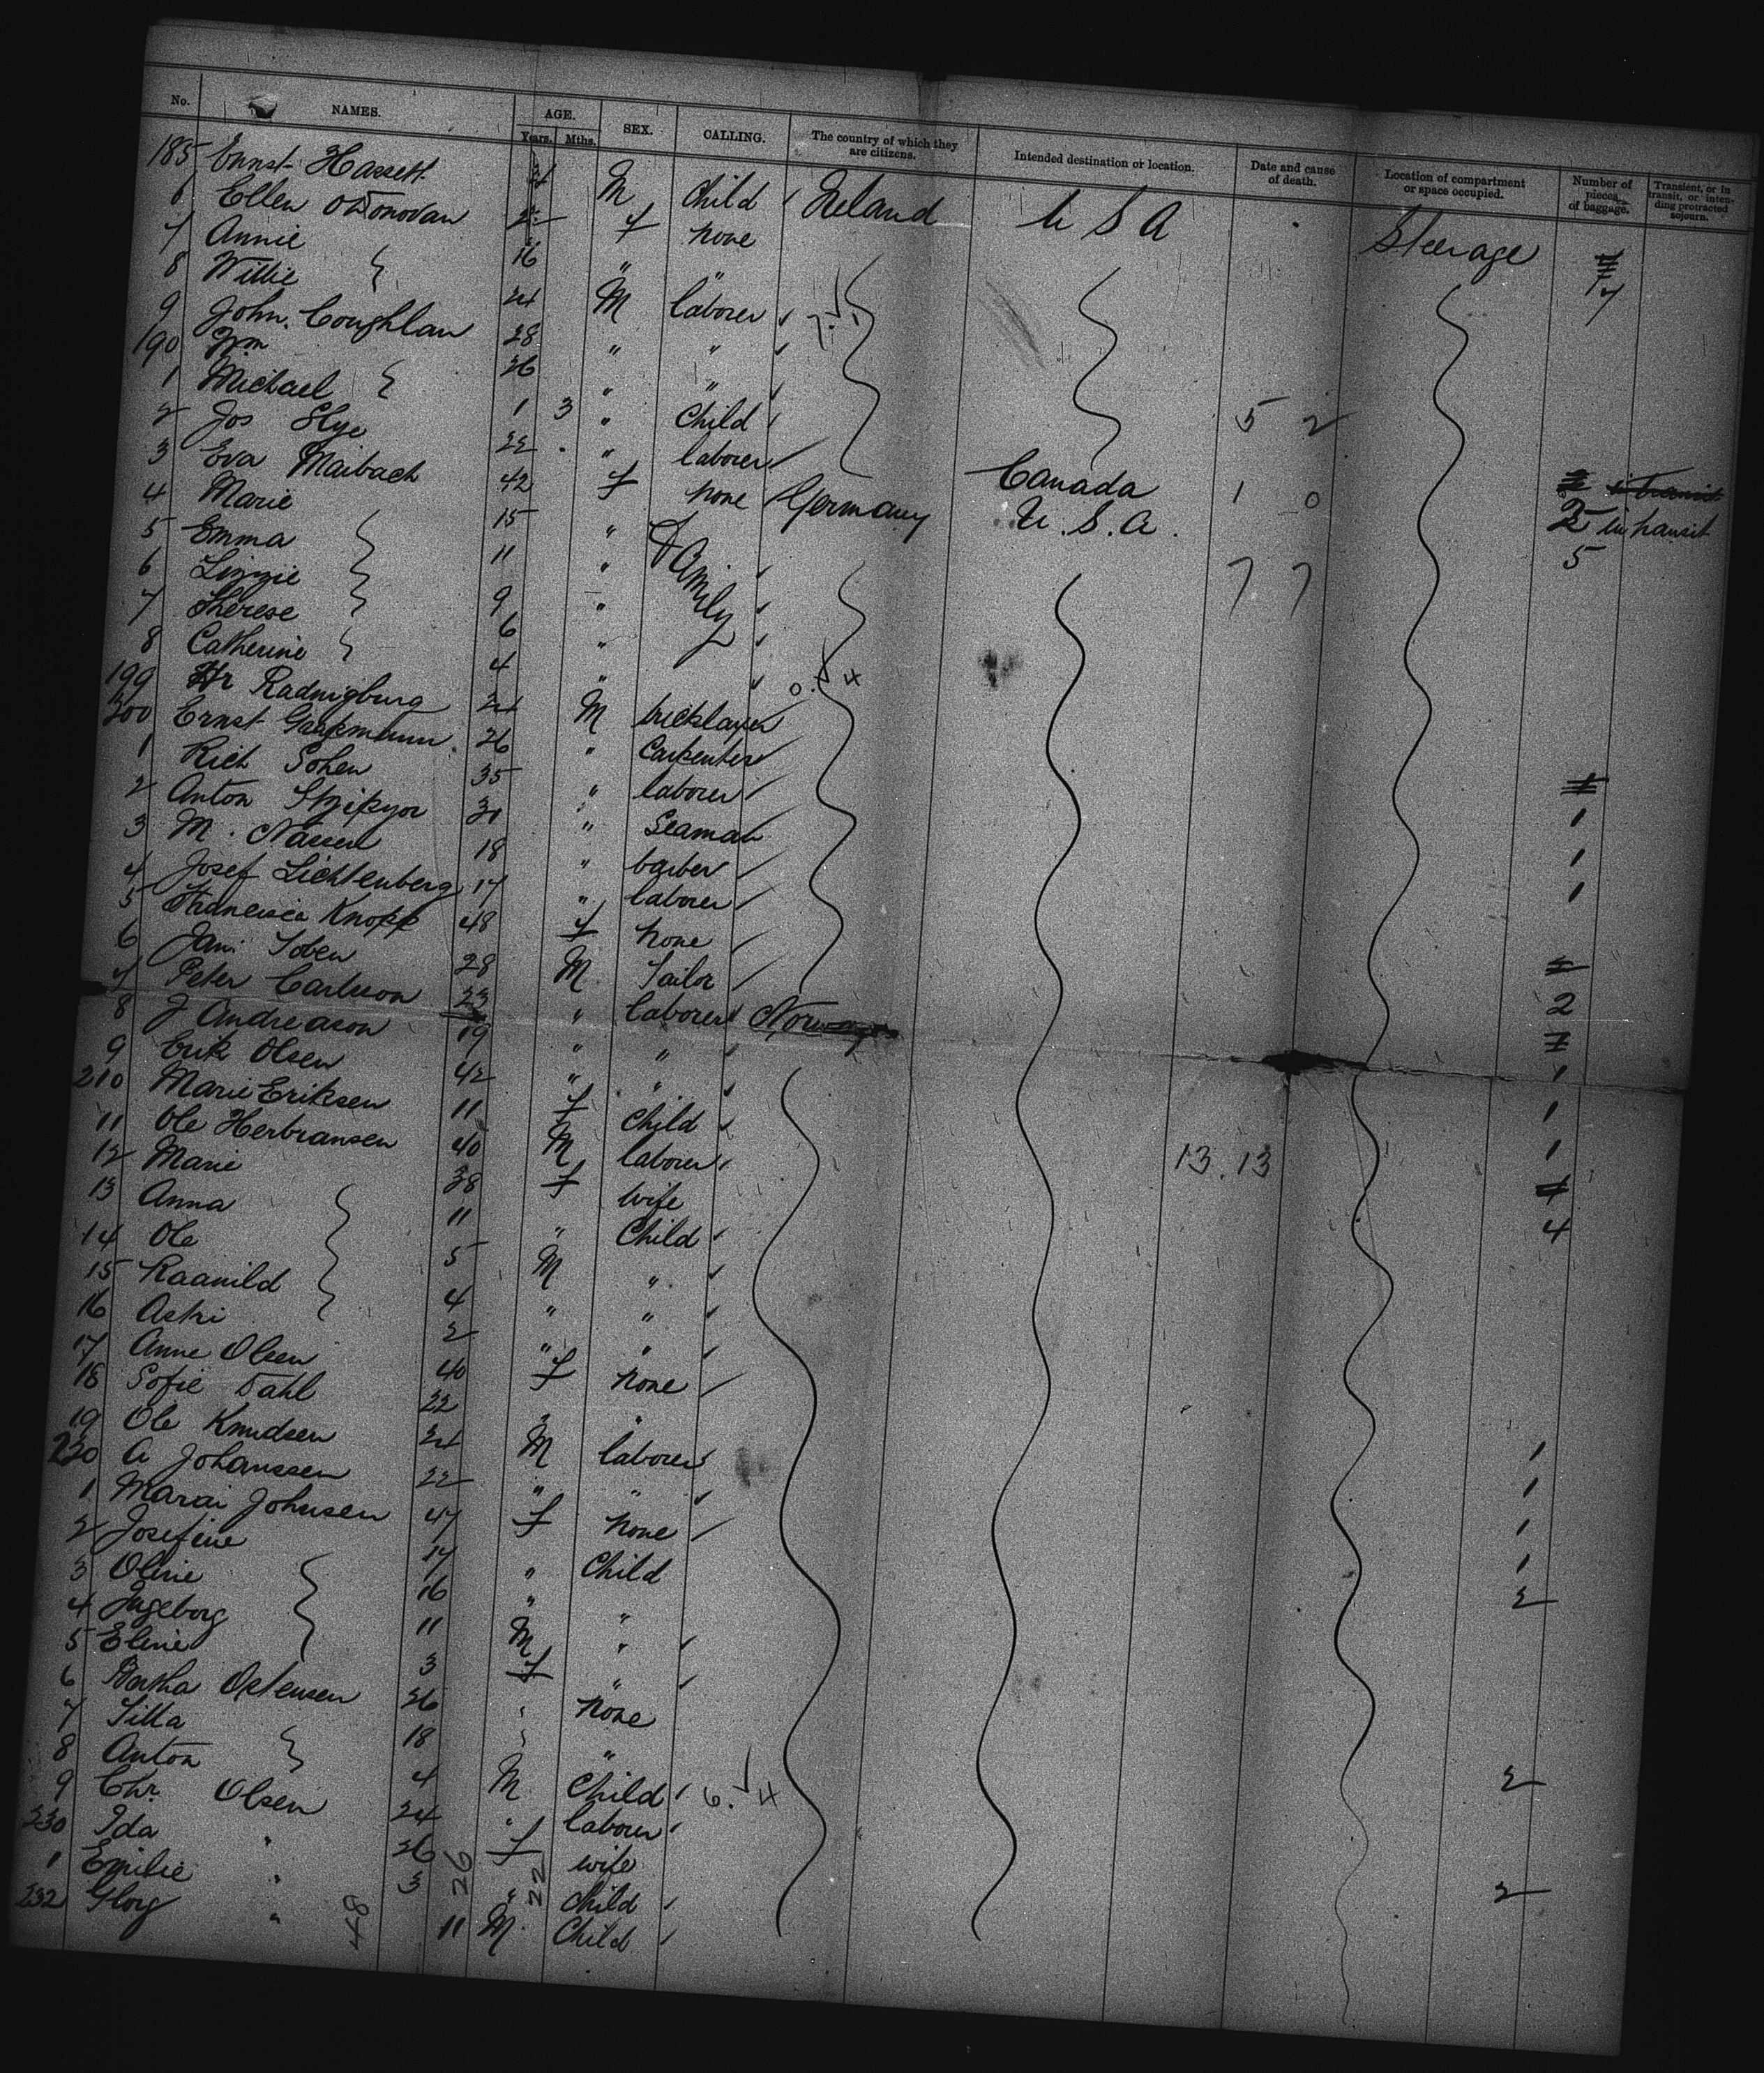 No. NAMES. AGE. Years. Mths. SEX. CALLING. The country of which they are citizens. Intended destination or location. Date and cause of death. Location of compartment or space occupied. Number of pieces of baggage. Transient, or in transit, or intending protracted sojourn.
185 Ernst Hassett M Child Ireland U S A Steerage
6 Ellen O'Donovan f none
7 Annie 16 " " 7
8 Willie 24 M laborer
9 John Coughlan 28 " "
190 Wm 26 " "
1 Michael 1 3 " Child 5 2
2 Jos Slye 22 " laborer Canada 1 0 2 in transit
3 Eva Maibach 42 f none Germany U.S.A. 5
4 Marie 15 " Family 7 7
5 Emma 11 "
6 Lizzie 9 "
7 Therese 6 "
8 Catherine 4 " 0 4
199 Radnigburg 24 M bricklayer
200 Ernst 26 " Carpenter
1 Rich Sohen 35 " laborer 1
2 Anton 30 " Seaman 1
3 M. Nassen 18 " barber 1
4 Josef Lichtenberg 17 " laborer
5 Francisca Knopp 48 f none
6 Jani Toben 28 M Tailor 2
7 Peter Carlsson 23 " laborer Norway
8 J Andreason 19 " " 1
9 Erik Olsen 42 " " 1
210 Marie Eriksen 11 f Child 1
11 Ole Herbransen 40 M laborer 13.13
12 Marie 38 f wife 4
13 Anna 11 " Child
14 Ole 5 M "
15 Raanild 4 " "
16 Astri 2 " "
17 Anne Olsen 40 f none
18 Sofie Dahl 22 " " 1
19 Ole Knudsen 24 M laborer 1
220 A Johanssen 22 " " 1
1 Marai Johnsen 47 f none 1
2 Josefine 17 " Child 2
3 Oline 16 " "
4 Ingeborg 11 M "
5 Eline 3 f "
6 Bertha Ostensen 26 " none
7 Tilla 18 " " 2
8 Anton 4 M Child 6. 4
9 Chr. Olsen 24 " laborer
230 Ida " 26 f wife 2
1 Emilie " 3 " child
232 Glory " 11 M. Child
48 26 22